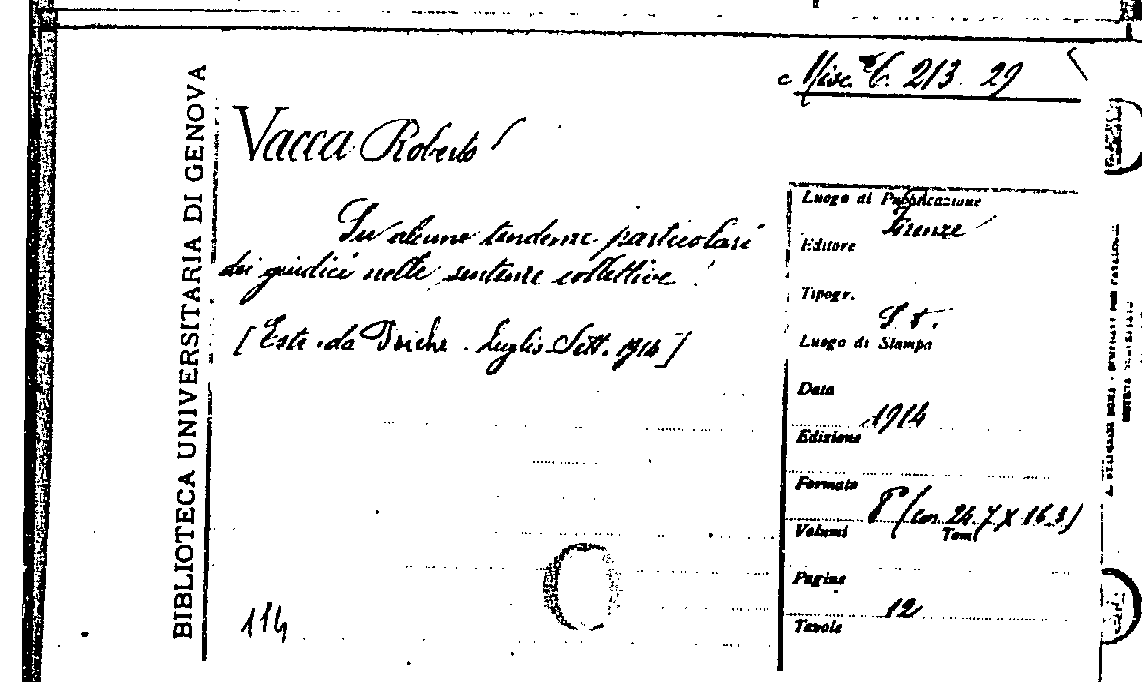 c Misc. C. 213. 29
BIBLIOTECA UNIVERSITARIA DI GENOVA
Vacca Roberto
Su alcune tendenze particolari
dei giudici nelle sentenze collettive
[Estr. da Psiche. Luglio-Sett. 1914]
114
Luogo di Pubblicazione
Firenze
Editore
Tipogr.
S. t.
Luogo di Stampa
Data
1914
Edizione
Formato
8° (cm 24.7 X 16.3)
Volumi Tomi
Pagine
12
Tavole